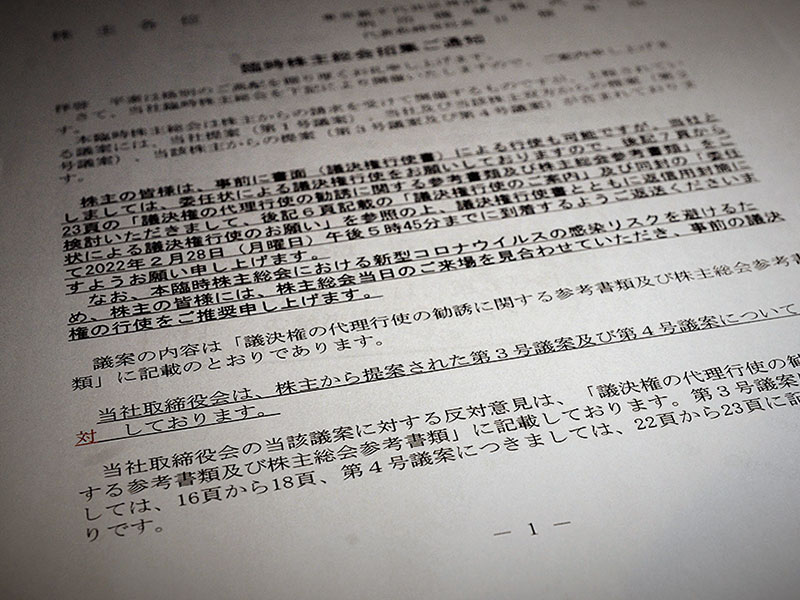 株主各位
臨時株主総会招集ご通知
拝啓　平素は格別のご高配を賜り厚くお礼申し上げます。
さて、当社臨時株主総会を下記により開催いたしますので、ご案内申し上げま
す。
本臨時株主総会は株主からの請求を受けて開催するものですが、上程されてい
る議案には、当社提案（第１号議案）、当社及び当該株主双方からの提案（第２
号議案）、当該株主からの提案（第３号議案及び第４号議案）が含まれておりま
す。
株主の皆様は、事前に書面（議決権行使書）による行使も可能ですが、当社と
しましては、委任状による議決権行使をお願いしておりますので、後記７頁から
23頁の「議決権の代理行使の勧誘に関する参考書類及び株主総会参考書類」をご
検討いただきまして、後記６頁記載の「議決権行使のご案内」及び同封の「委任
状による議決権行使のお願い」を参照の上、議決権行使書とともに返信用封筒に
て2022年２月28日（月曜日）午後５時45分までに到着するようご返送くださいま
すようお願い申し上げます。
なお、本臨時株主総会における新型コロナウイルスの感染リスクを避けるた
め、株主の皆様には、株主総会当日のご来場を見合わせていただき、事前の議決
権の行使をご推奨申し上げます。
議案の内容は「議決権の代理行使の勧誘に関する参考書類及び株主総会参考書
類」に記載のとおりであります。
当社取締役会は、株主から提案された第３号議案及び第４号議案について
対　しております。
当社取締役会の当該議案に対する反対意見は、「議決権の代理行使の勧
する参考書類及び株主総会参考書類」に記載しております。第３号議案
しては、16頁から18頁、第４号議案につきましては、22頁から23頁に記
りです。
― 1 ―